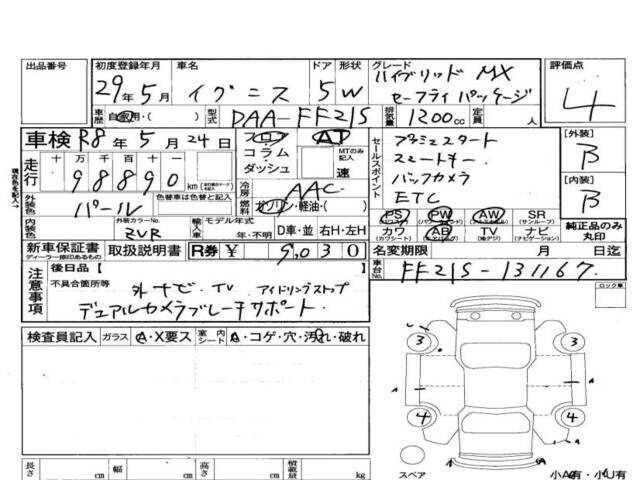 出品番号 初度登録年月 車名 ドア 形状 グレード 評価点
29年5月 イグニス 5 W ハイブリッド MX
セーフティパッケージ
4
車歴 自家用・( ) 型式 DAA-FF21S 排気量 1200cc 定員 人
車検 R8年5月24日 フロア AT セールスポイント プッシュスタート [外装] B
走行 十万千百十一 コラム MTのみ記入 スマートキー
98890 km ダッシュ 速 バックカメラ [内装] B
現在色を記入→ 外装色 パール 色替車は色替と記入 冷房 AAC ETC
燃料 ガソリン・軽油・( ) PS PW AW SR(サンルーフ) 純正品のみ丸印
内装色 外装カラーNo. ZVR 輸入車 モデル年式 年・不明 D車・並 右H・左H カワ(カワシート) AB TV(地デジ) ナビ(ナビゲーション)
新車保証書 ディーラー捺印あるもの 取扱説明書 R券 ¥ 9,030 名変期限 月 日迄
注意事項 後日品【 】 車台No. FF21S-131167
不具合箇所等 外ナビ・TV アイドリングストップ ロック車
デュアルカメラブレーキサポート
検査員記入 ガラス A・X要ス 室内シート A・コゲ・穴・汚れ・破れ
3 3
A A
4 4
A A
スペア 小A有・小U有
長さ cm 幅 cm 高さ cm 積載量 kg